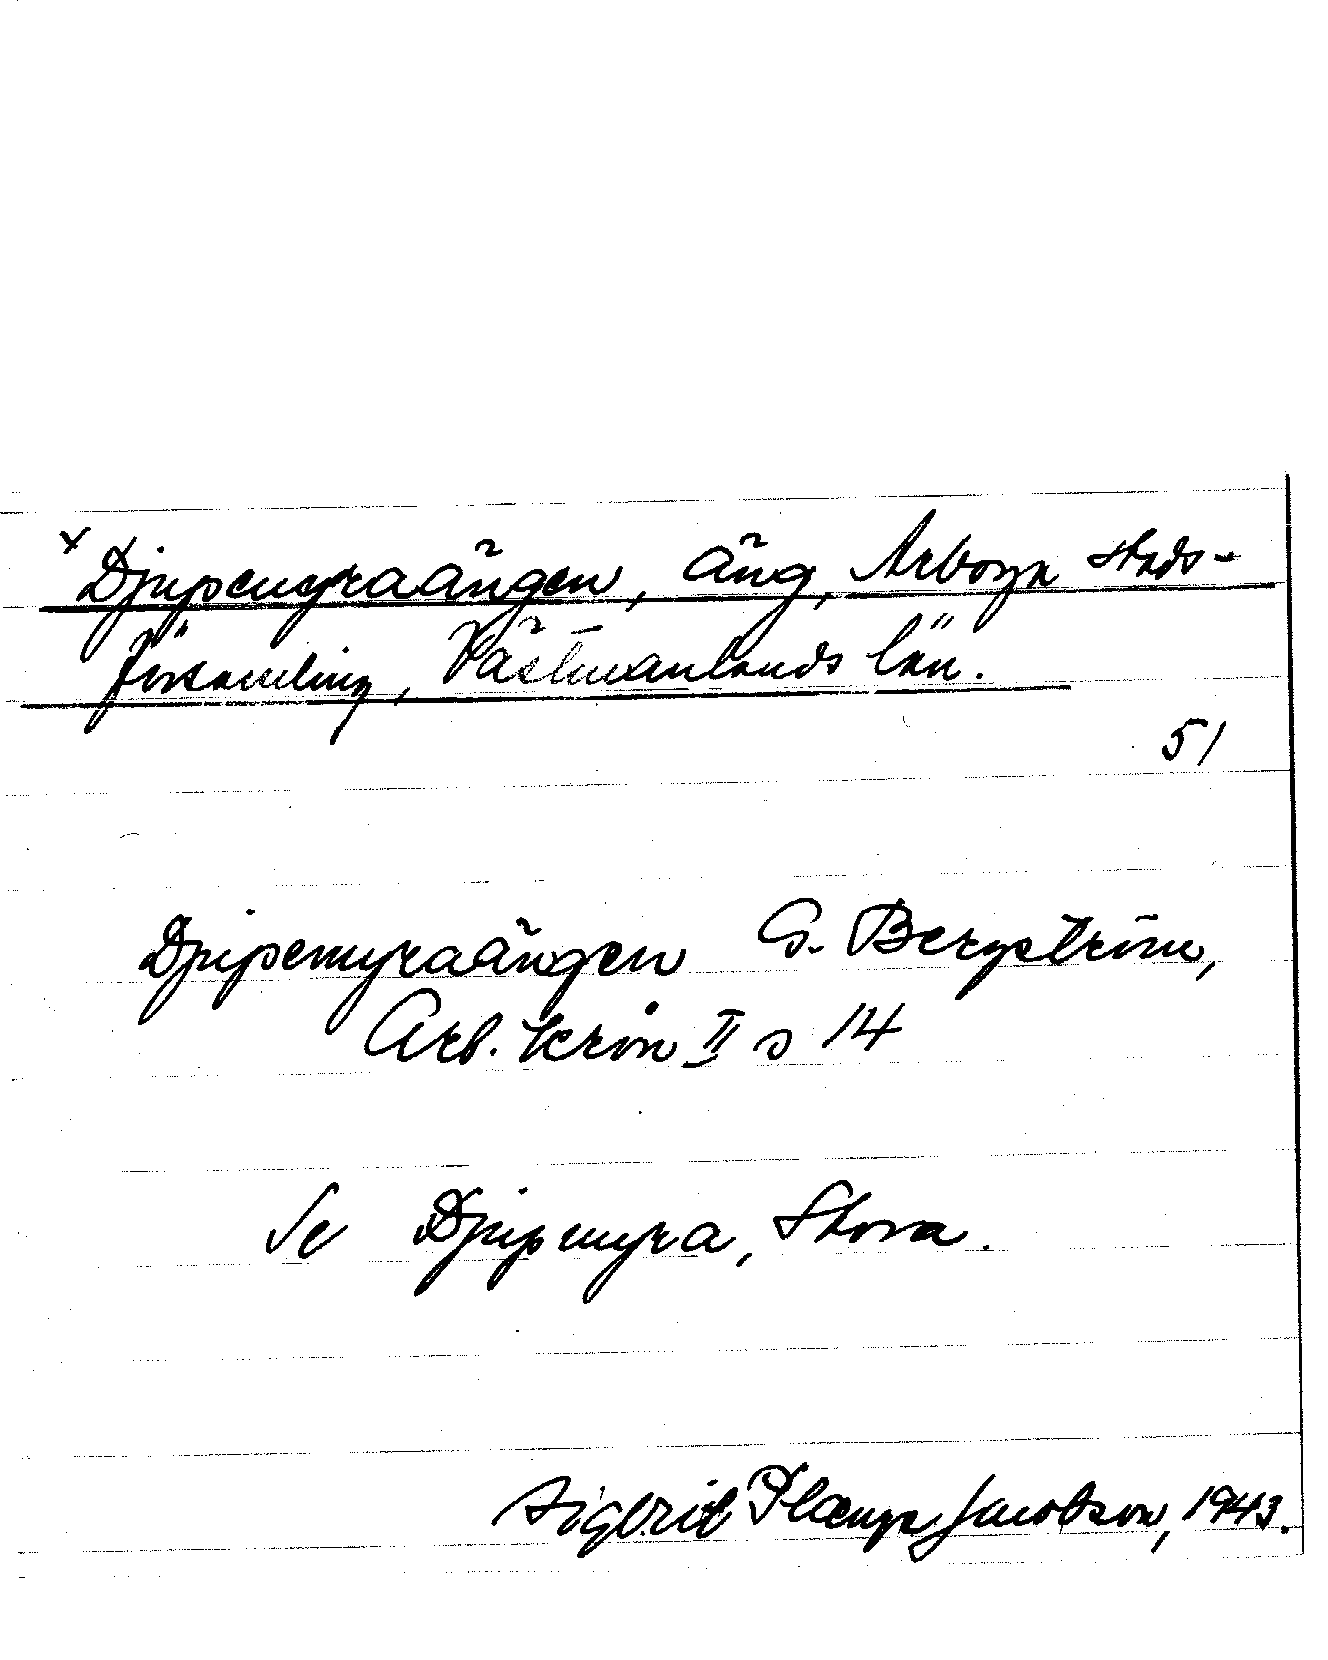 x Djupemyraängen, äng, Arboga stads-
församling, Västmanlands län.
51
Djupemyraängen G. Bergström,
Arb. krön II s 14
Se Djupmyra, Stora.
Sigbrit Plænge Jacobson, 1943.